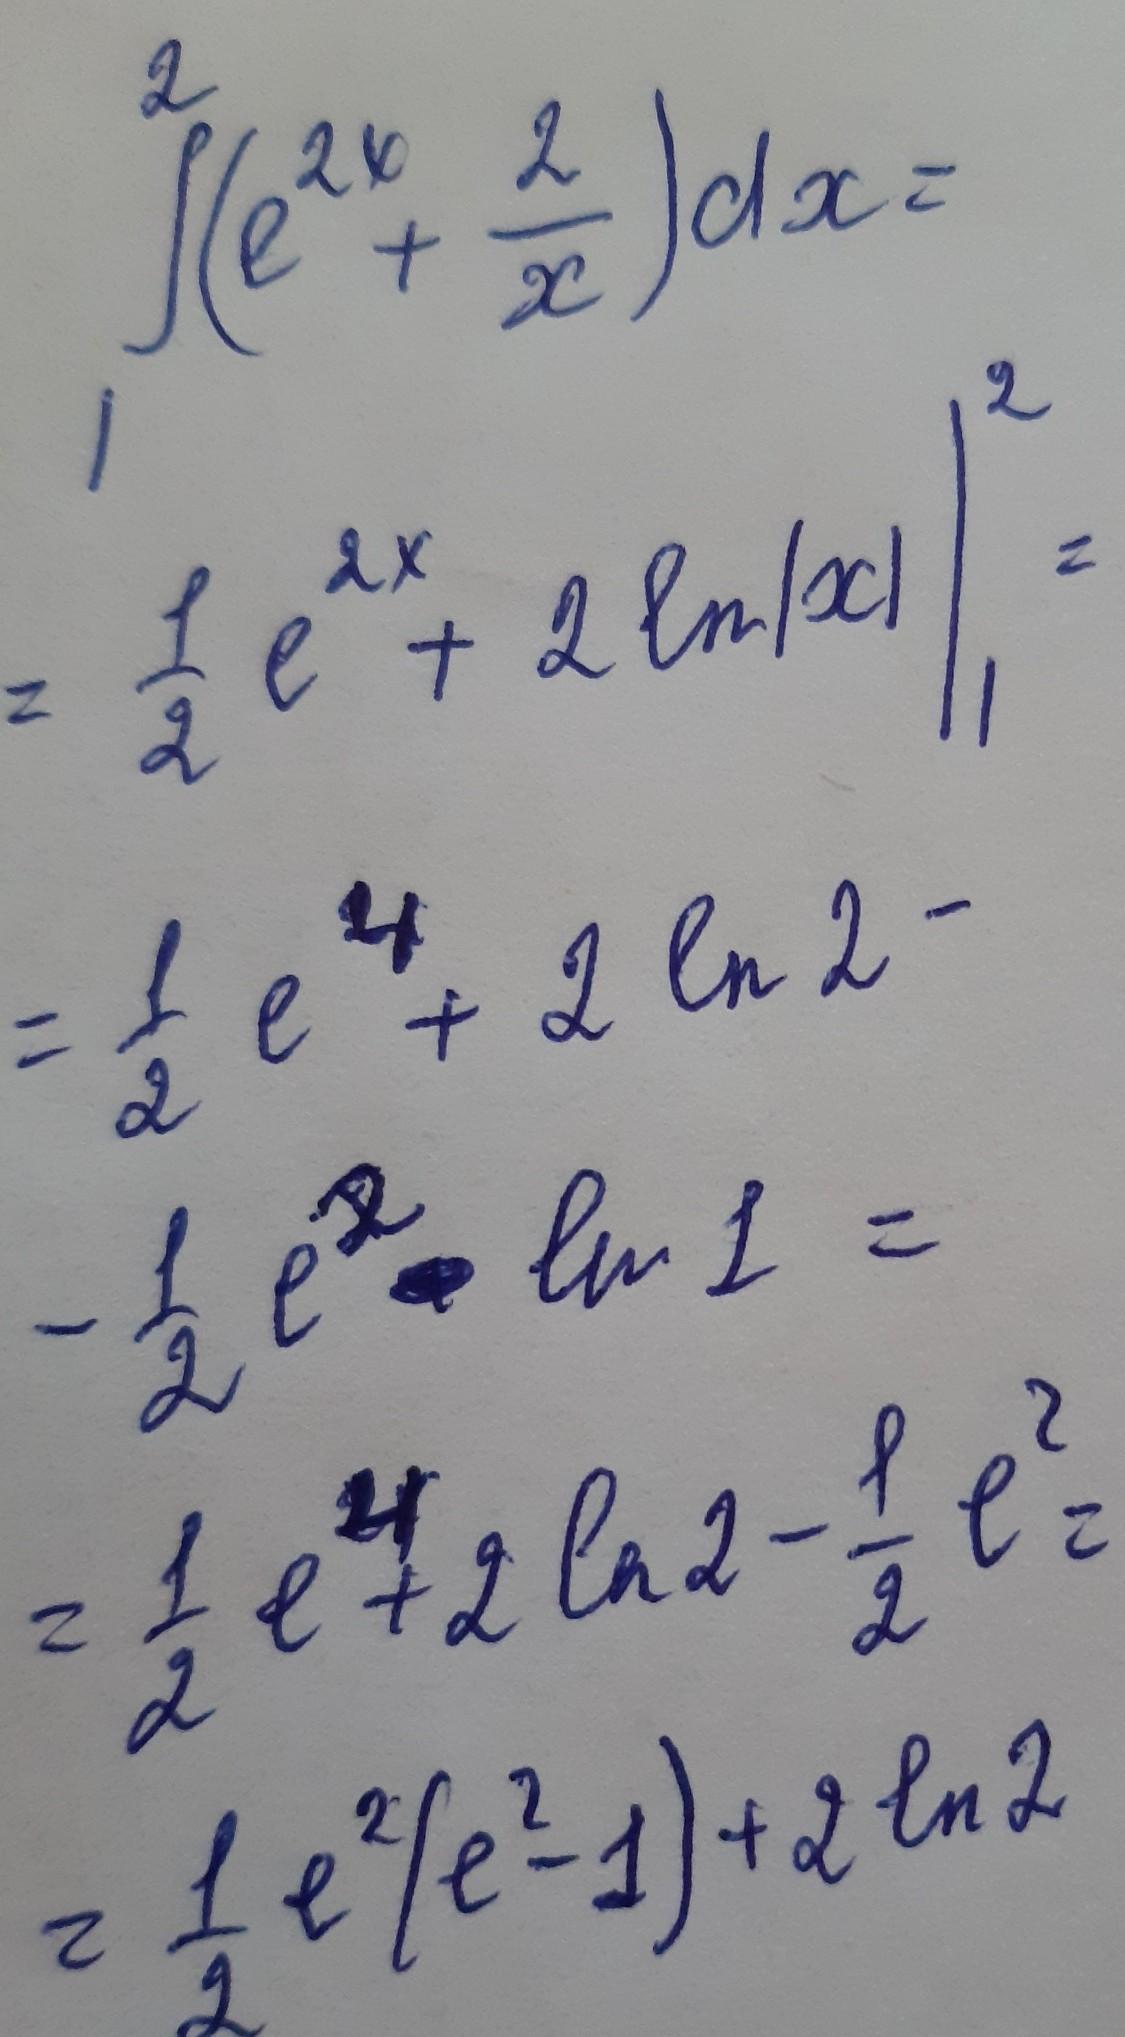 ∫₁²(e^{2x} + 2/x)dx =
= 1/2 e^{2x} + 2 ln|x| |₁² =
= 1/2 e^4 + 2 ln 2 -
- 1/2 e^2 - ln 1 =
= 1/2 e^4 + 2 ln 2 - 1/2 e^2 =
= 1/2 e^2(e^2 - 1) + 2 ln 2